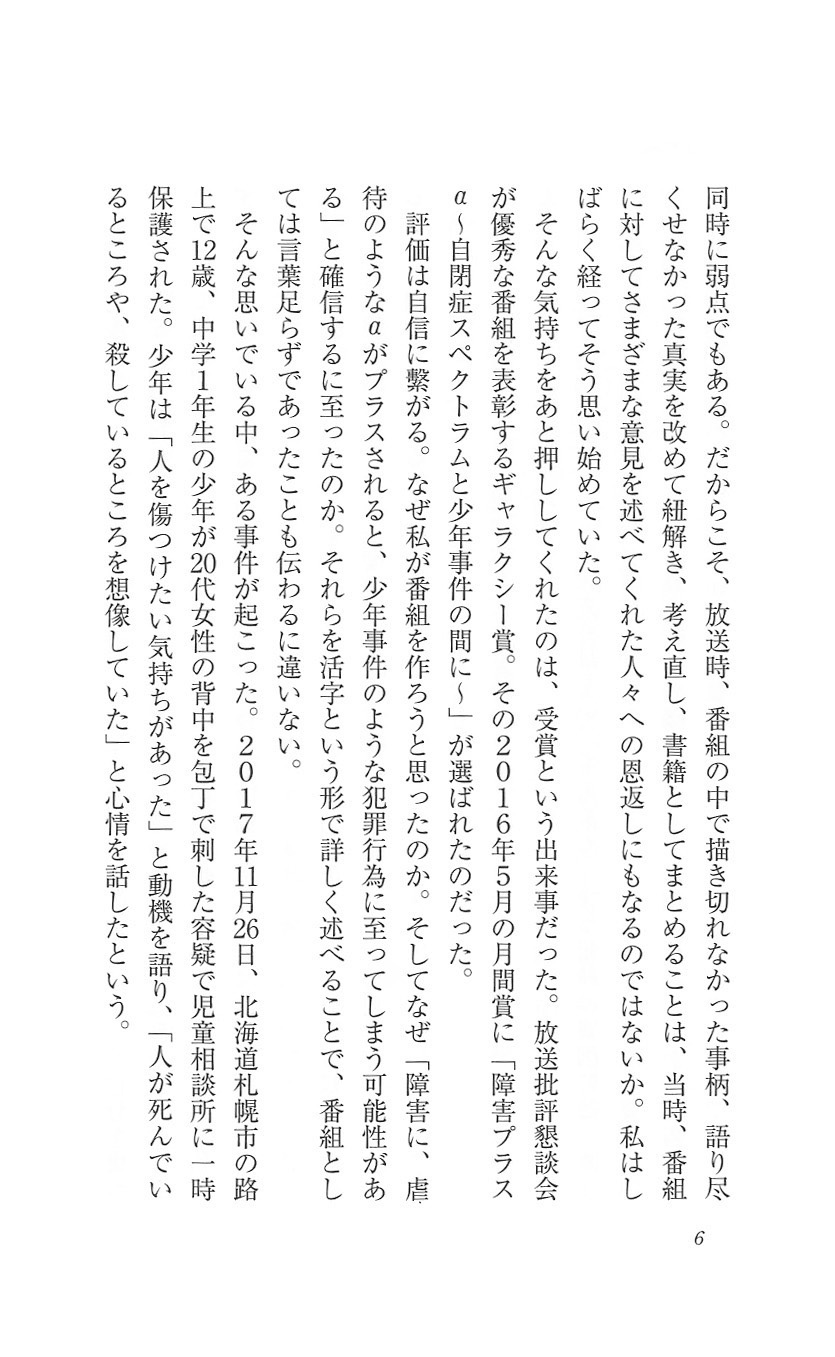 同時に弱点でもある。だからこそ、放送時、番組の中で描き切れなかった事柄、語り尽
くせなかった真実を改めて紐解き、考え直し、書籍としてまとめることは、当時、番組
に対してさまざまな意見を述べてくれた人々への恩返しにもなるのではないか。私はし
ばらく経ってそう思い始めていた。
そんな気持ちをあと押ししてくれたのは、受賞という出来事だった。放送批評懇談会
が優秀な番組を表彰するギャラクシー賞。その2016年5月の月間賞に「障害プラス
α〜自閉症スペクトラムと少年事件の間に〜」が選ばれたのだった。
評価は自信に繫がる。なぜ私が番組を作ろうと思ったのか。そしてなぜ「障害に、虐
待のようなαがプラスされると、少年事件のような犯罪行為に至ってしまう可能性があ
る」と確信するに至ったのか。それらを活字という形で詳しく述べることで、番組とし
ては言葉足らずであったことも伝わるに違いない。
そんな思いでいる中、ある事件が起こった。2017年11月26日、北海道札幌市の路
上で12歳、中学1年生の少年が20代女性の背中を包丁で刺した容疑で児童相談所に一時
保護された。少年は「人を傷つけたい気持ちがあった」と動機を語り、「人が死んでい
るところや、殺しているところを想像していた」と心情を話したという。
6